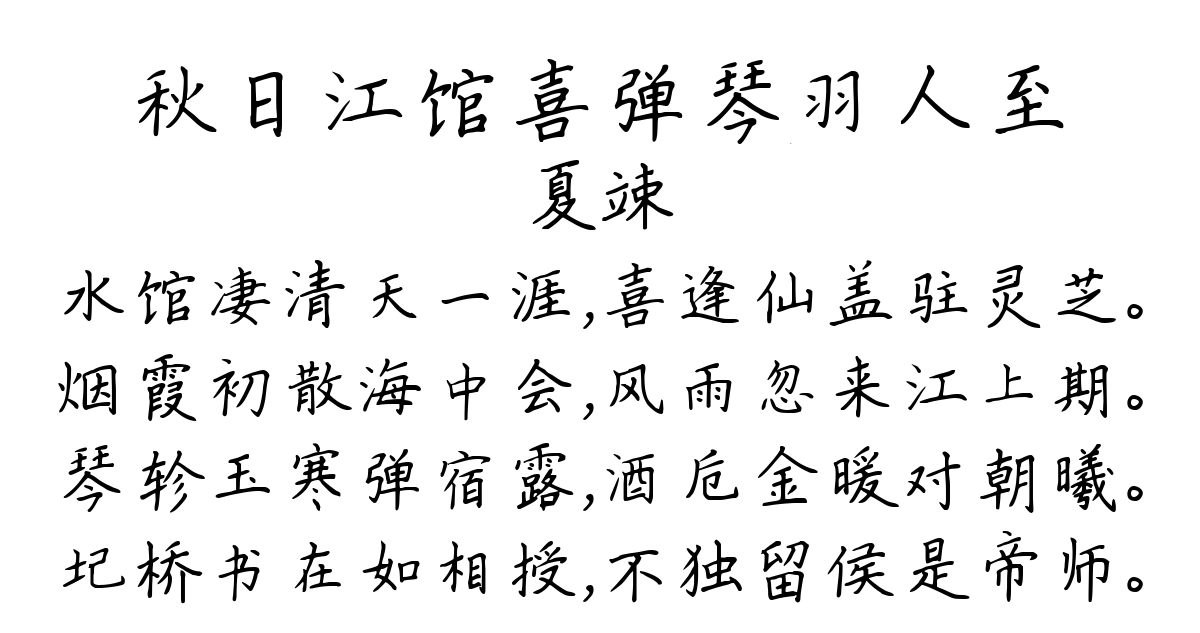 秋日江馆喜弹琴羽人至
夏竦
水馆凄清天一涯,喜逢仙盖驻灵芝。
烟霞初散海中会,风雨忽来江上期。
琴轸玉寒弹宿露,酒卮金暖对朝曦。
圯桥书在如相授,不独留侯是帝师。